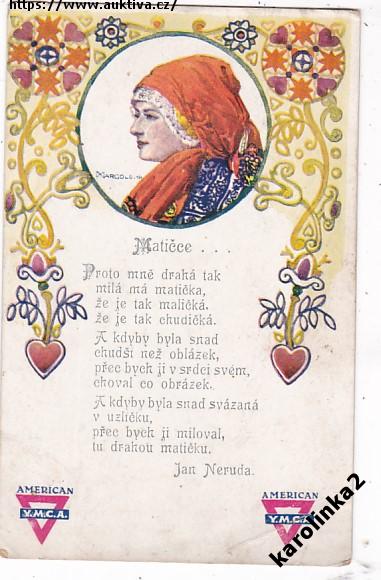 https://www.auktiva.cz/
Matičce . . .
Proto mně drahá tak
milá má matička,
že je tak maličká,
že je tak chudičká.
A kdyby byla snad
chudší než oblázek,
přec bych ji v srdci svém,
choval co obrázek.
A kdyby byla snad svázaná
v uzlíčku,
přec bych ji miloval,
tu drahou matičku.
Jan Neruda.
AMERICAN
Y.M.C.A.
AMERICAN
Y.M.C.A.
karolinka2